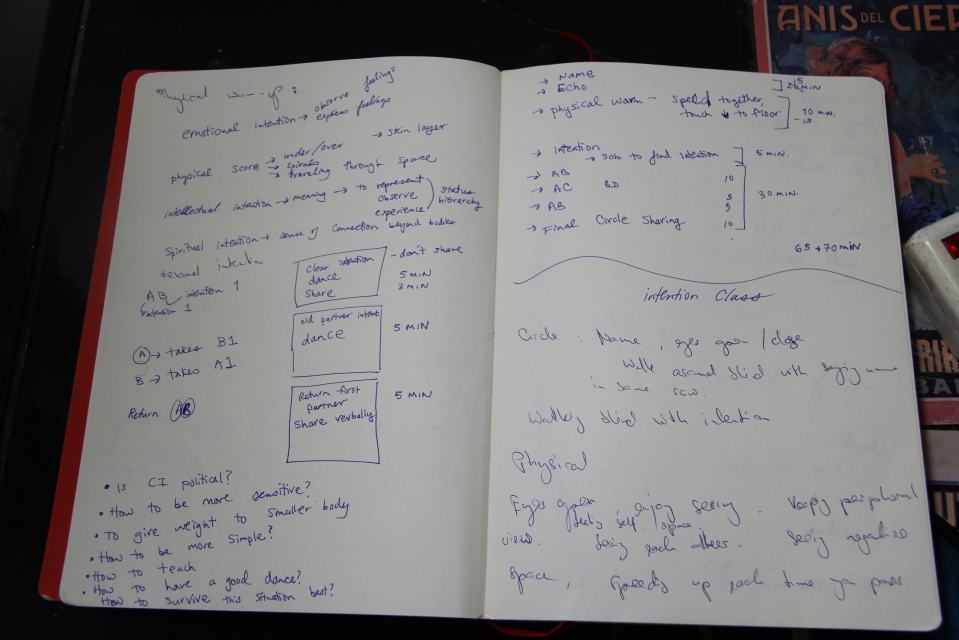 Physical warm-up :
emotional intention → observe feelings
express feelings
→ skin layer
physical score → under/over
→ spirals
→ traveling through space
intellectual intention → meaning → to represent
observe
experience
status
hierarchy
Spiritual intention → sense of connection beyond bodies
sexual intention
AB intention 1
intention 1
clear intention
dance
share
- don't share
5 MIN
3 MIN
old partner intent.
dance
5 MIN
A → takes B1
B → takes A1
Return AB
Return first
partner
share verbally
5 MIN
• Is CI political?
• How to be more sensitive?
• To give weight to smaller body
• How to be more simple?
• How to teach
• How to have a good dance?
How to survive this situation best?
→ Name
→ Echo
MIN
→ physical warm - speed together,
touch ↓ to floor
10 MIN.
- 15
→ Intention
→ solo to find intention
5 MIN.
→ AB 10
→ AC BD
→ AB
5
5
→ Final Circle Sharing 10
30 MIN.
65 → 70 MIN
intention Class
Circle : Name, eyes open / close
Walk around blind with saying name
in same
Walking blind with intention
Physical
Eyes open enjoy seeing . Keeping peripheral
view. feeling self / space
Seeing each others. seeing negative
space, speeding up each time you pass
ANIS DEL